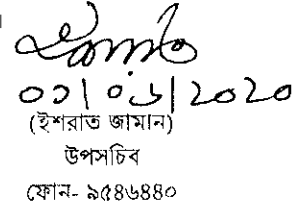 ০১|০৬|২০২০
(ইশরাত জামান)
উপসচিব
ফোন- ৯৫৪৬৪৪০